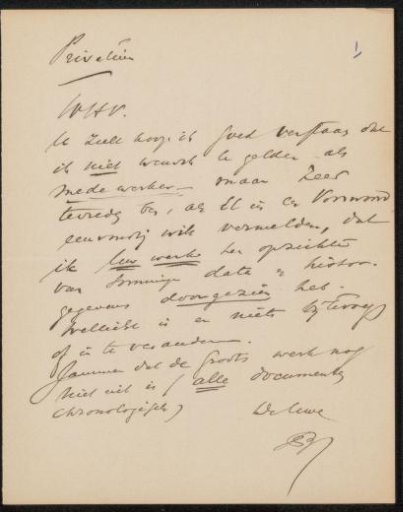 1
Privatim
WHV.
U zult hoop ik goed verstaan dat
ik niet wensch te gelden als
medewerker maar zeer
tevreden ben, als U in een Voorwoord
eenvoudig wilt vermelden, dat
ik Uw werk ten opzichte
van sommige data en histor.
gegevens doorgezien heb.
Wellicht is er niets bij te voegen
of in te veranderen.
Jammer dat de Groots werk nog
niet uit is (alle documenten
chronologisch)
de Uwe